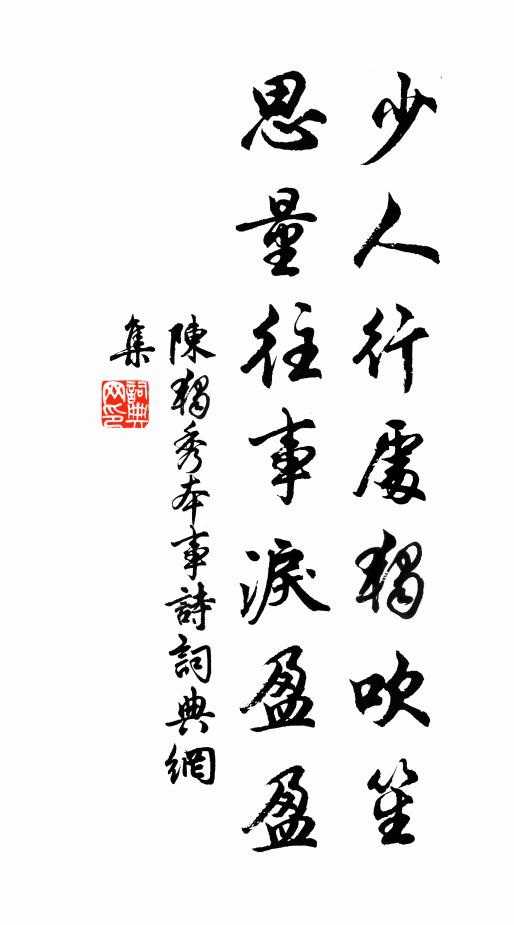 少人行處獨吹笙
思量往事淚盈盈
陳獨秀本事詩詞典網
集
詞典網印